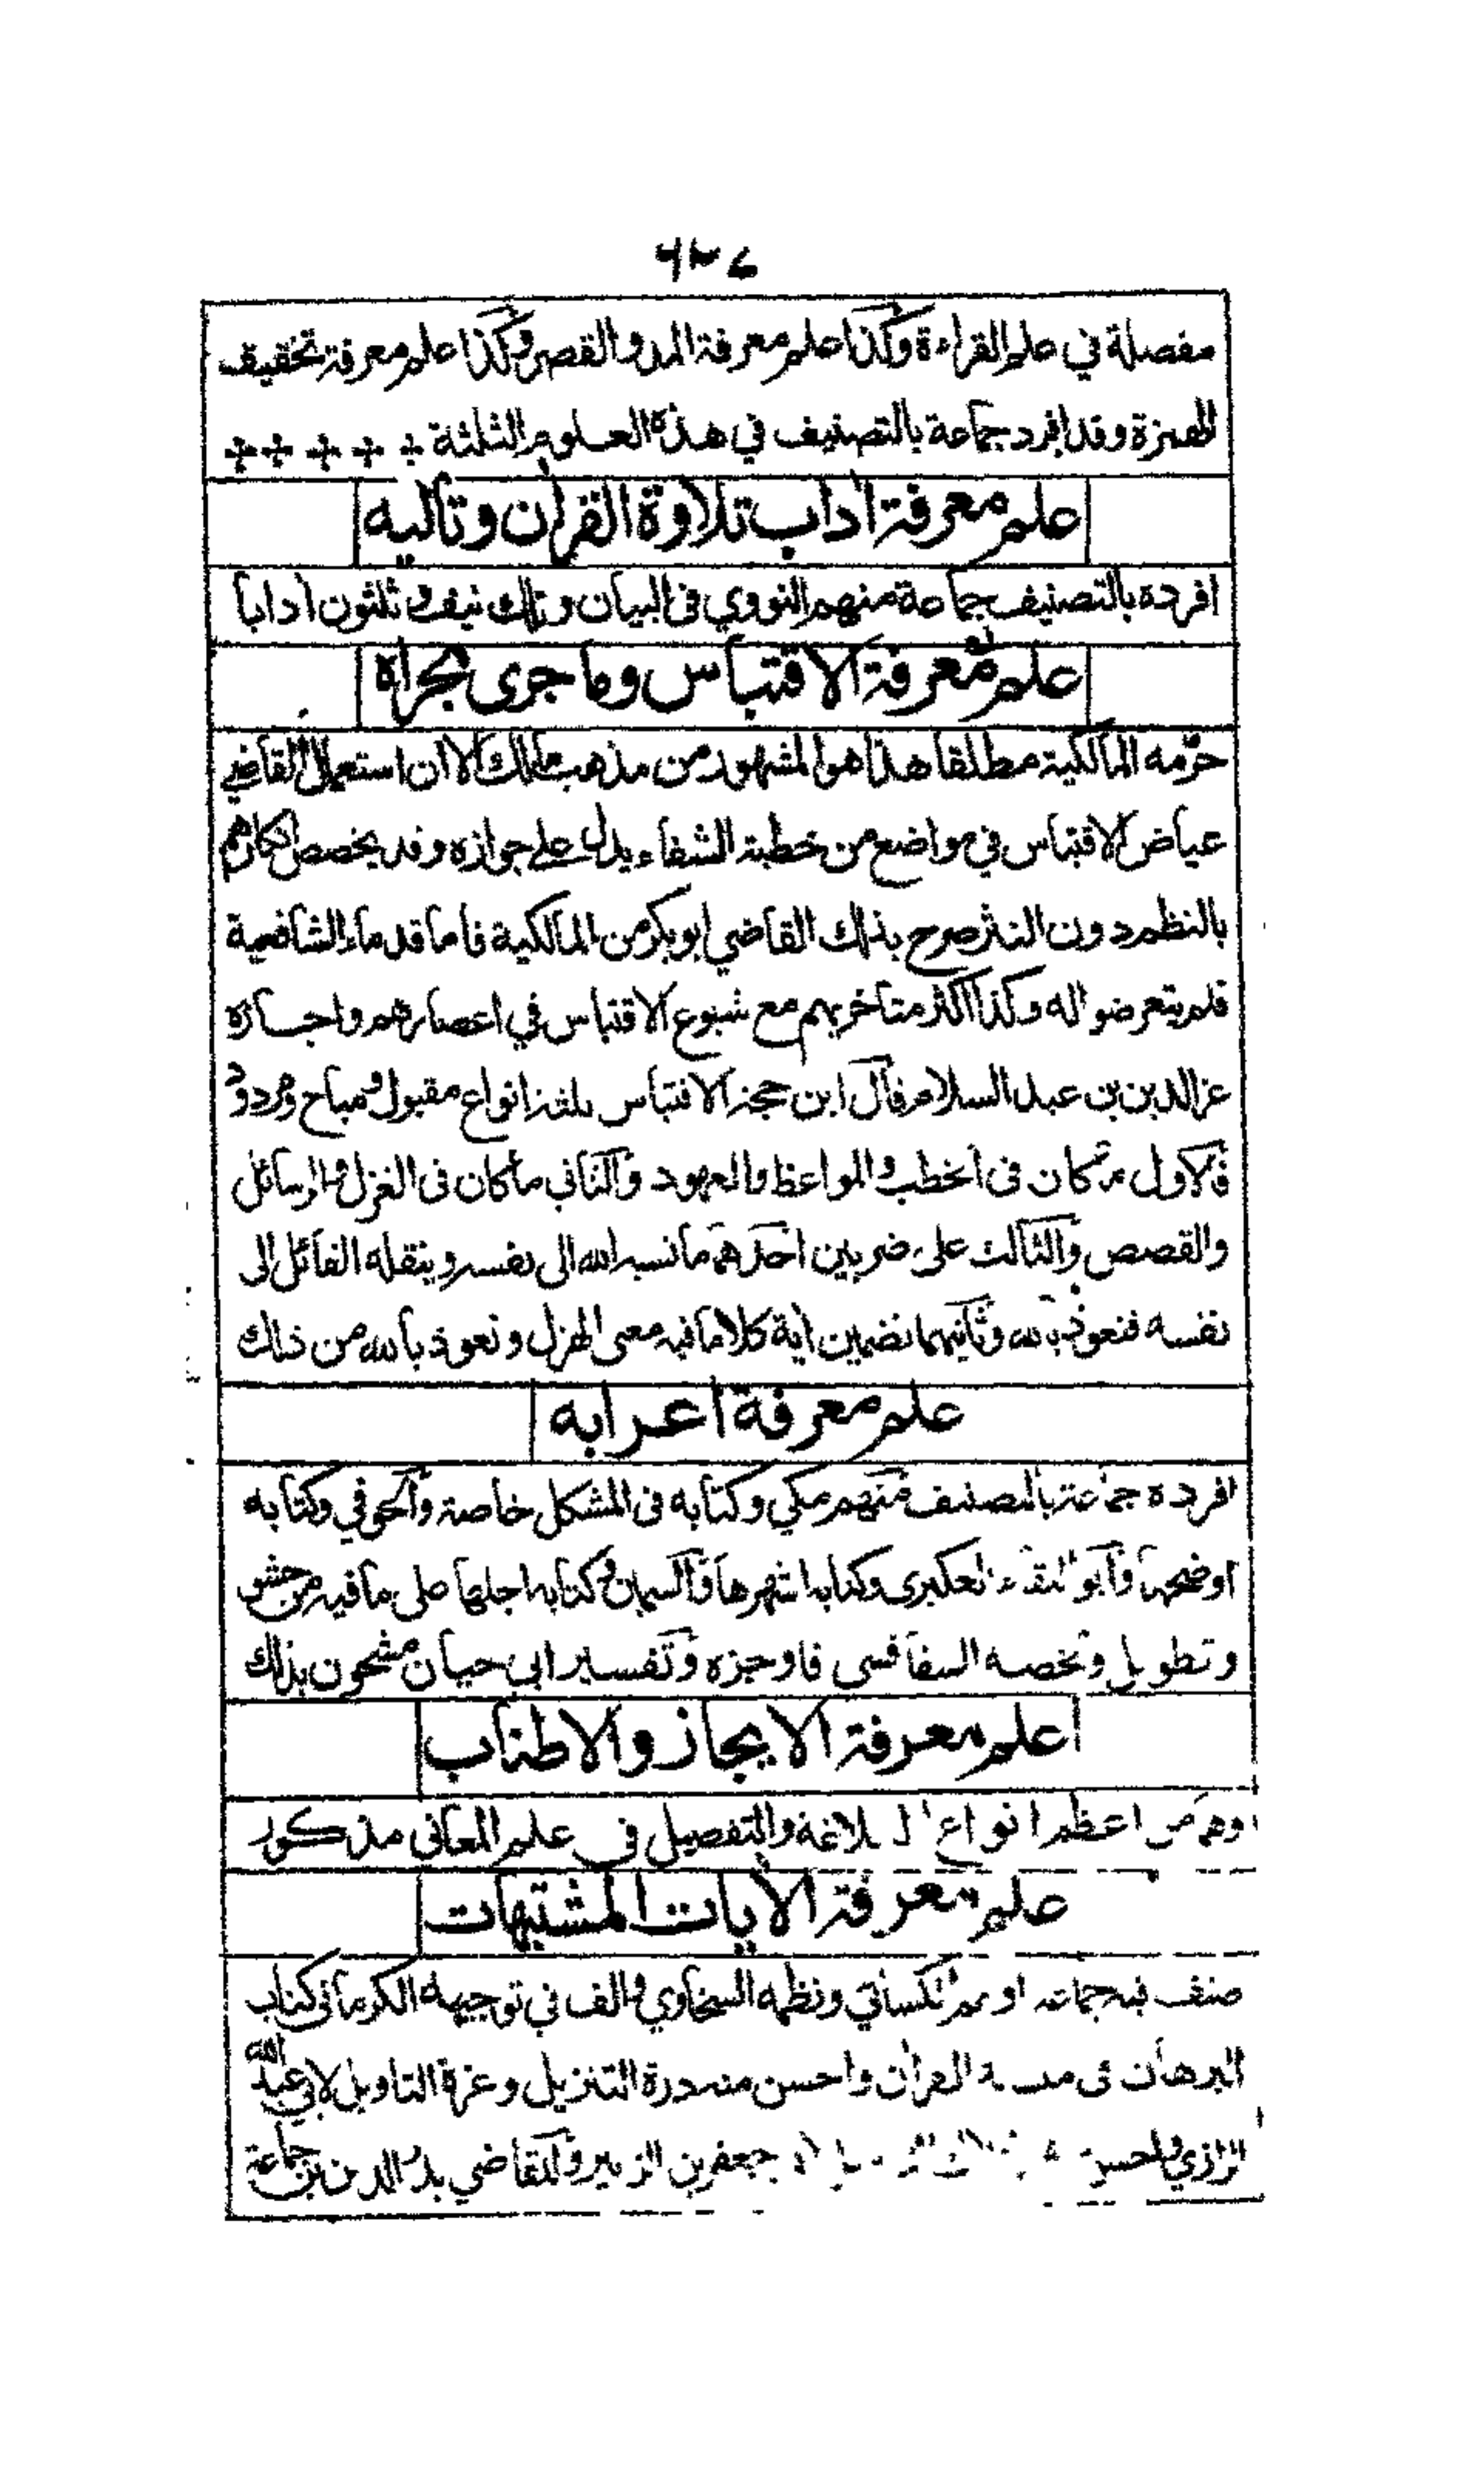 مفصلة في علم القراءة وكذا علم معرفة المد والقصر وكذا علم معرفة تخفيف
الهمزة وقد افرد جماعة بالتصنيف في هذه العلوم الثلثة
علم معرفة اداب تلاوة القران وتاليه
افرده بالتصنيف جماعة منهم النووي فى البيان وتلك نيف وثلثون ادابا
علم معرفة الاقتباس وما جرى مجراه
حرمه المالكية مطلقا هذا هو المشهور من مذهب مالك الا ان استعمال القاضي
عياض الاقتباس في مواضع من خطبة الشفاء يدل على جوازه وقد يخصص انكارهم
بالنظم دون النثر صرح بذلك القاضي ابو بكر من المالكية فاما قدماء الشافعية
فلم يتعرضوا له وكذا اكثر متاخريهم مع شيوع الاقتباس في اعصارهم واجازه
عز الدين بن عبد السلام قال ابن حجة الاقتباس ثلثة انواع مقبول ومباح ومردود
فالاول ما كان فى الخطب والمواعظ والعهود والثاني ما كان فى الغزل والرسائل
والقصص والثالث على ضربين احدهما ما نسبه الله الى نفسه وينقله القائل الى
نفسه فنعوذ بالله وثانيهما تضمين اية كلاما فيه معنى الهزل ونعوذ بالله من ذلك
علم معرفة اعرابه
افرده جماعة بالتصنيف منهم مكي وكتابه فى المشكل خاصة والحوفي وكتابه
اوضحها وابو البقاء العكبرى وكتابه اشهرها والسمين وكتابه اجلها على ما فيه من حشو
وتطويل ولخصه السفاقسى فاوجزه وتفسير ابي حيان مشحون بذلك
علم معرفة الايجاز والاطناب
وهما من اعظم انواع البلاغة والتفصيل فى علم المعانى مذكور
علم معرفة الايات المشتبهات
صنف فيه جماعة اولهم الكسائي ونظمه السخاوي والف في توجيهه الكرمانى كتاب
البرهان فى القران واحسن منه درة التنزيل وغرة التاويل لابي عبد الله
الرازي واحسن جعفر بن الزبير وللقاضي بدر الدين بن جماعة